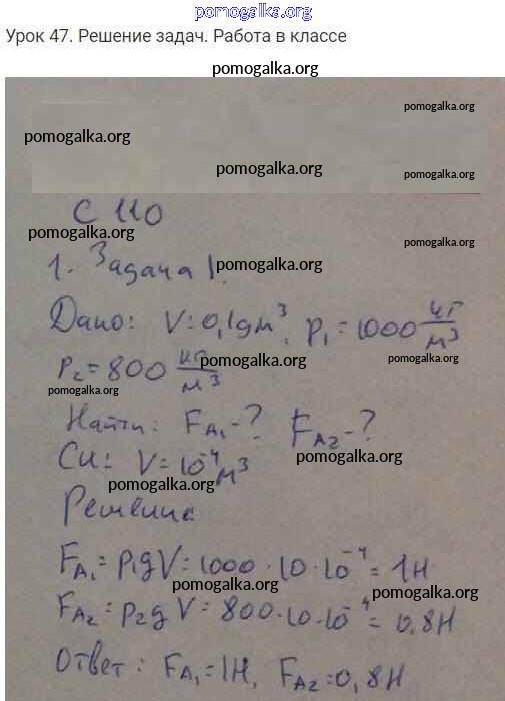 pomogalka.org
Урок 47. Решение задач. Работа в классе
pomogalka.org
pomogalka.org
pomogalka.org
pomogalka.org
pomogalka.org
С 110
pomogalka.org
pomogalka.org
pomogalka.org
1. Задача 1.
Дано: V=0,1дм³, ρ₁=1000 кг/м³
pomogalka.org
pomogalka.org
ρ₂=800 кг/м³
pomogalka.org
Найти: F_A₁-? F_A₂-?
pomogalka.org
СИ: V=10⁻⁴м³
pomogalka.org
Решение
F_A₁=ρ₁gV=1000·10·10⁻⁴=1Н
pomogalka.org
pomogalka.org
F_A₂=ρ₂gV=800·10·10⁻⁴=0,8Н
Ответ: F_A₁=1Н, F_A₂=0,8Н
pomogalka.org